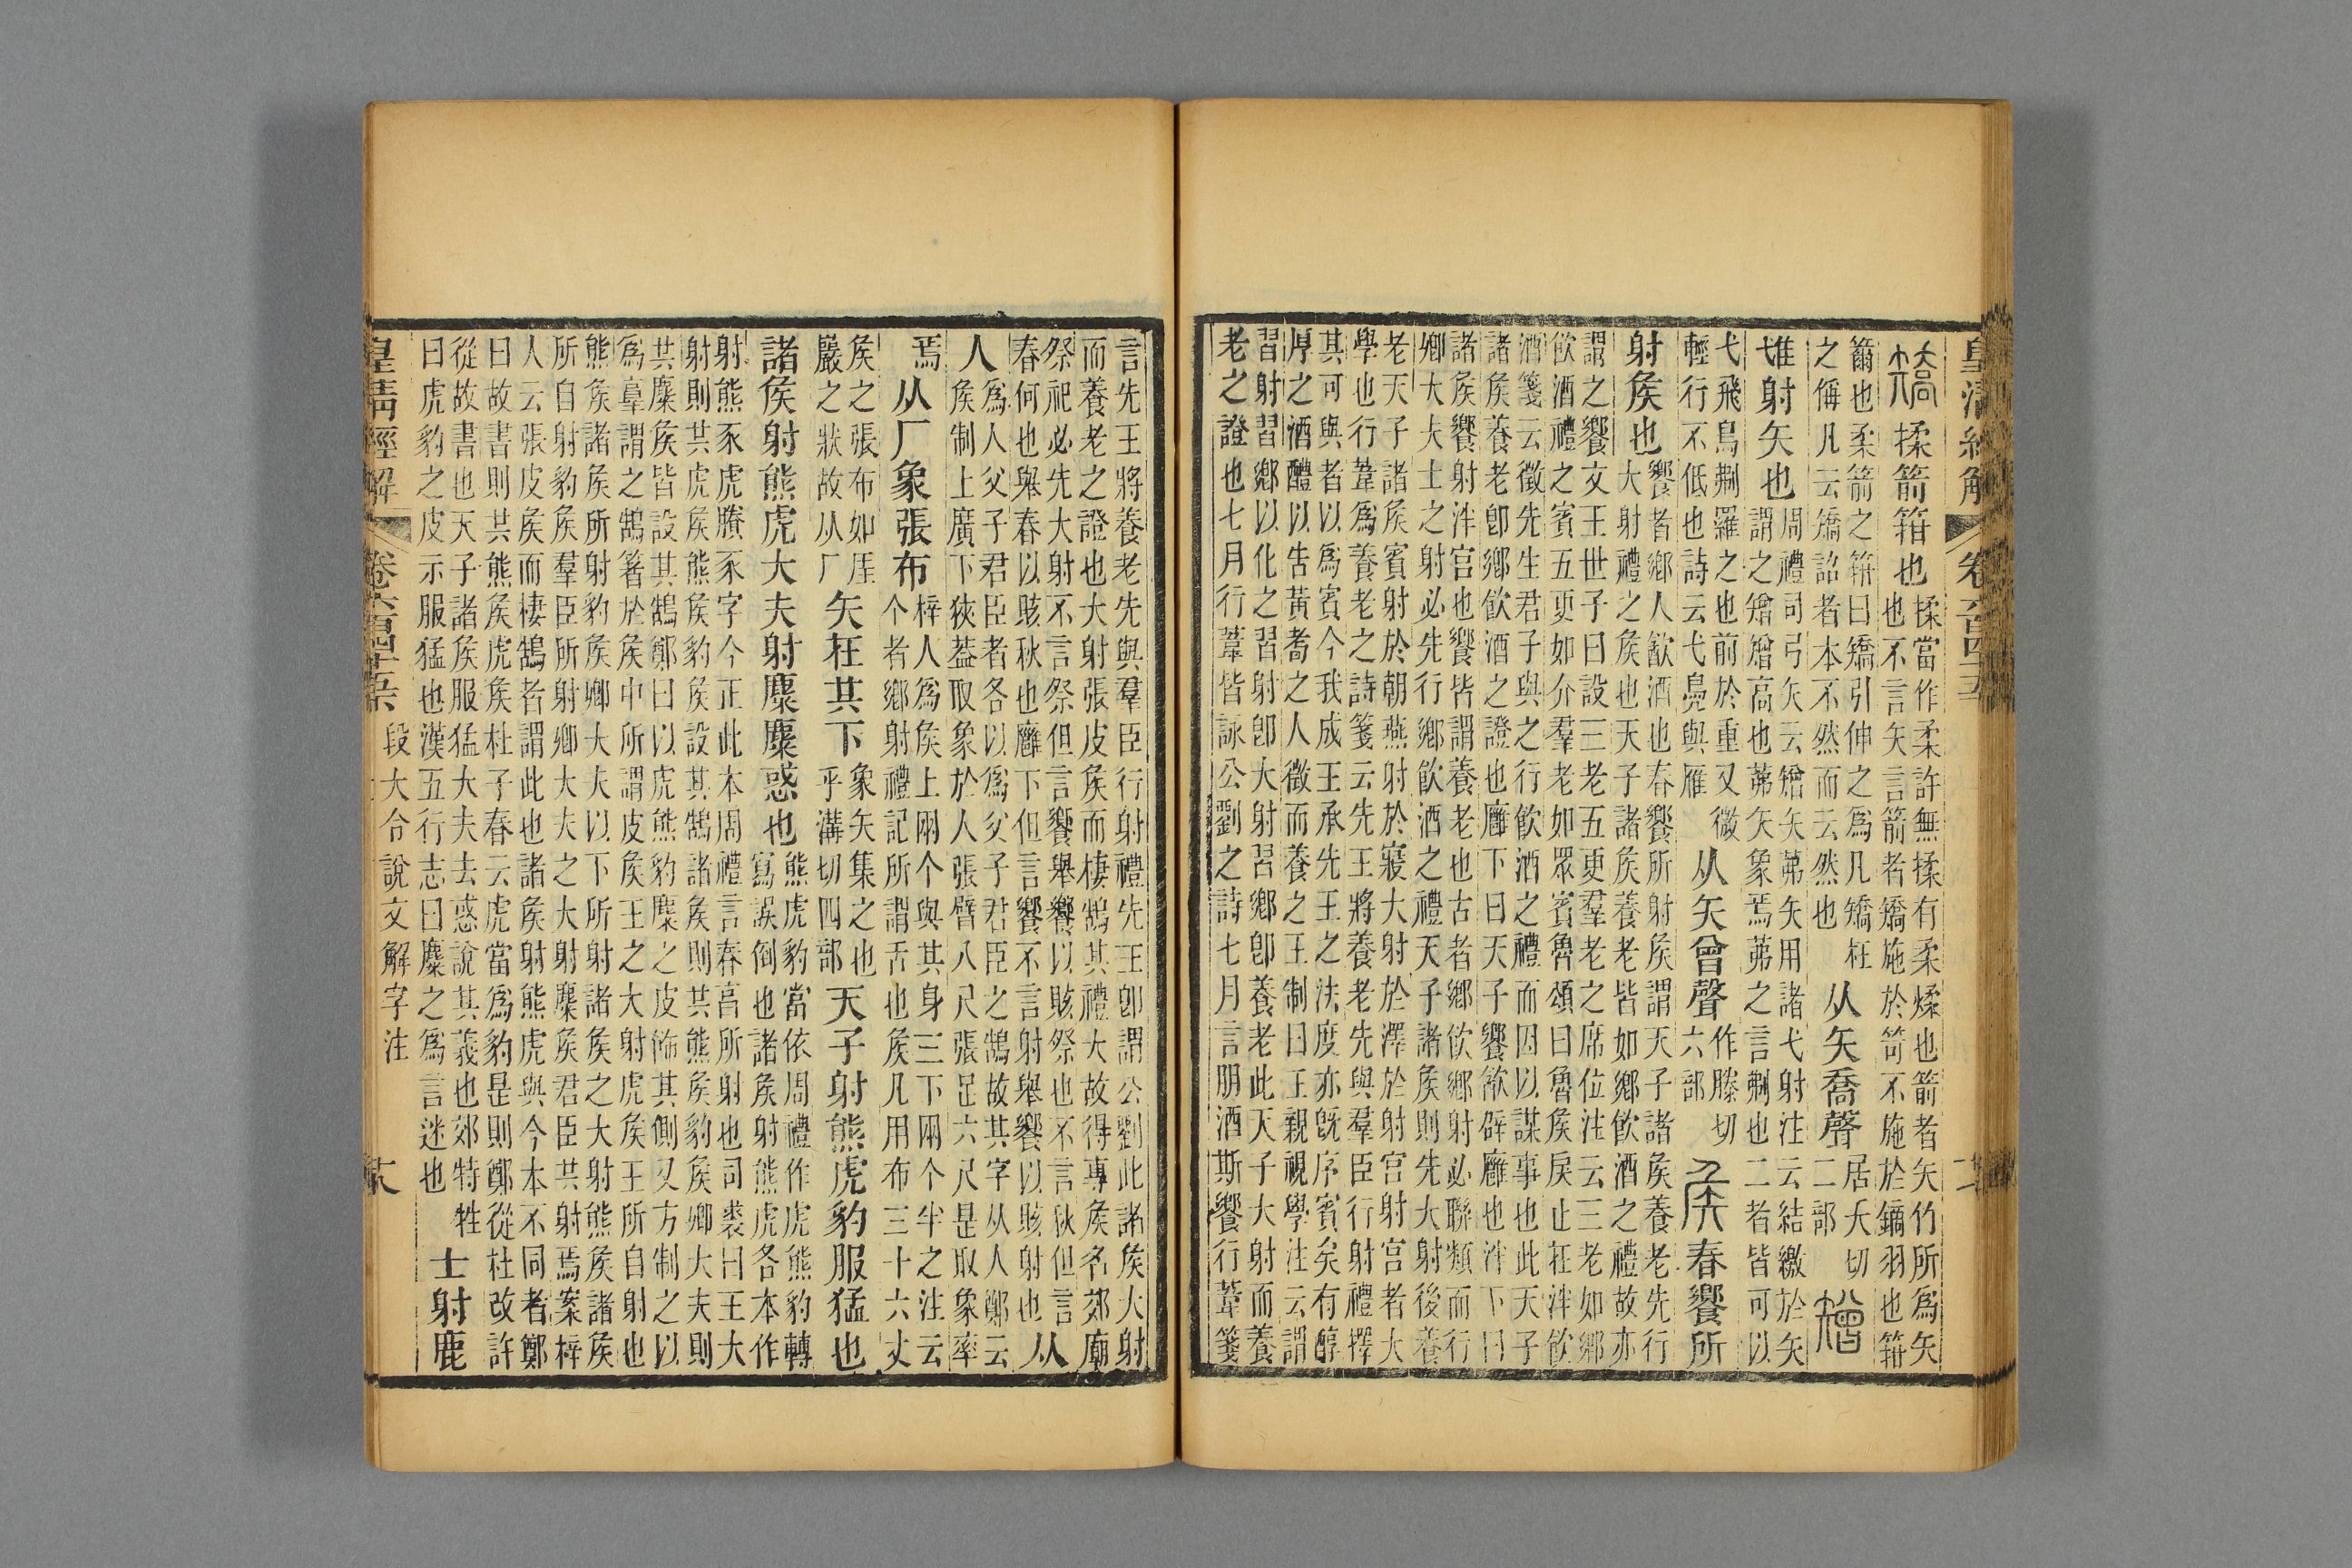 皇清經解 卷
矯 揉箭箝也 揉當作柔許無揉有柔煣也箭者矢竹所爲矢
也不言矢言箭者矯施於笴不施於鏑羽也箝
籋也柔箭之箝曰矯引伸之爲凡矯枉
之偁凡云矯詔者本不然而云然也 从矢喬聲 居夭切二部 矰
隿射矢也 周禮司弓矢云矰矢茀矢用諸弋射注云結繳於矢
謂之矰矰高也茀矢象焉茀之言刜也二者皆可以
弋飛鳥刜羅之也前於重又微
輕行不低也詩云弋鳧與雁 从矢曾聲 作滕切六部 矦 春饗所
射矦也 饗者鄉人歓酒也春饗所射矦謂天子諸矦養老先行
大射禮之矦也天子諸矦養老皆如鄉飮酒之禮故亦
謂之饗文王世子曰設三老五更羣老之席位注云三老如鄉
飮酒禮之賓五更如介羣老如眾賓魯頌曰魯矦戾止在泮飮
酒箋云徵先生君子與之行飮酒之禮而因以謀事也此天子
諸矦養老卽鄉飮酒之證也廱下曰天子饗飮辟廱也泮下曰
諸矦饗射泮宮也饗皆謂養老也古者鄉飮鄉射必聯類而行
鄉大夫士之射必先行鄉飮酒之禮天子諸矦則先大射後養
老天子諸矦賓射於朝燕射於寢大射於澤於射宮射宮者大
學也行葦爲養老之詩箋云先王將養老先與羣臣行射禮擇
其可與者以爲賓今我成王承先王之法度亦旣序賓矣有醇
厚之酒醴以告黃耇之人徵而養之王制曰王親視學注云謂
習射習鄉以化之習射卽大射習鄉卽養老此天子大射而養
老之證也七月行葦皆詠公劉之詩七月言朋酒斯饗行葦箋
言先王將養老先與羣臣行射禮先王卽謂公劉此諸矦大射
而養老之證也大射張皮矦而棲鵠其禮大故得專矦名郊廟
祭祀必先大射不言祭但言饗舉饗以賅祭也不言秋但言
春何也舉春以賅秋也廱下但言饗不言射舉饗以賅射也 从
人 爲人父子君臣者各以爲父子君臣之鵠故其字从人鄭云
矦制上廣下狹葢取象於人張臂八尺張足六尺是取象率
焉 从厂象張布 梓人爲矦上兩个與其身三下兩个半之注云
个者鄉射禮記所謂舌也矦凡用布三十六丈
矦之張布如厓
嚴之狀故从厂 矢在其下 象矢集之也乎溝切四部 天子射熊虎豹服猛也
諸矦射熊虎大夫射麋麋惑也 熊虎豹當依周禮作虎熊豹轉
寫誤倒也諸矦射熊虎各本作
射熊豕虎賸豕字今正此本周禮言春亯所射也司裘曰王大
射則共虎矦熊矦豹矦設其鵠諸矦則共熊矦豹矦卿大夫則
共麋矦皆設其鵠鄭曰以虎熊豹麋之皮飾其側又方制之以
爲𦎫謂之鵠箸於矦中所謂皮矦王之大射虎矦王所自射也
熊矦諸矦所射豹矦卿大夫以下所射諸矦之大射熊矦諸矦
所自射豹矦羣臣所射卿大夫之大射麋矦君臣共射焉案梓
人云張皮矦而棲鵠者謂此也諸矦射熊虎與今本不同者鄭
曰故書則共熊矦虎矦杜子春云虎當爲豹是則鄭從杜改許
從故書也天子諸矦服猛大夫去惑說其義也郊特牲
曰虎豹之皮示服猛也漢五行志曰麋之爲言迷也 士射鹿
皇清經解 卷六百四十五 段大令說文解字注